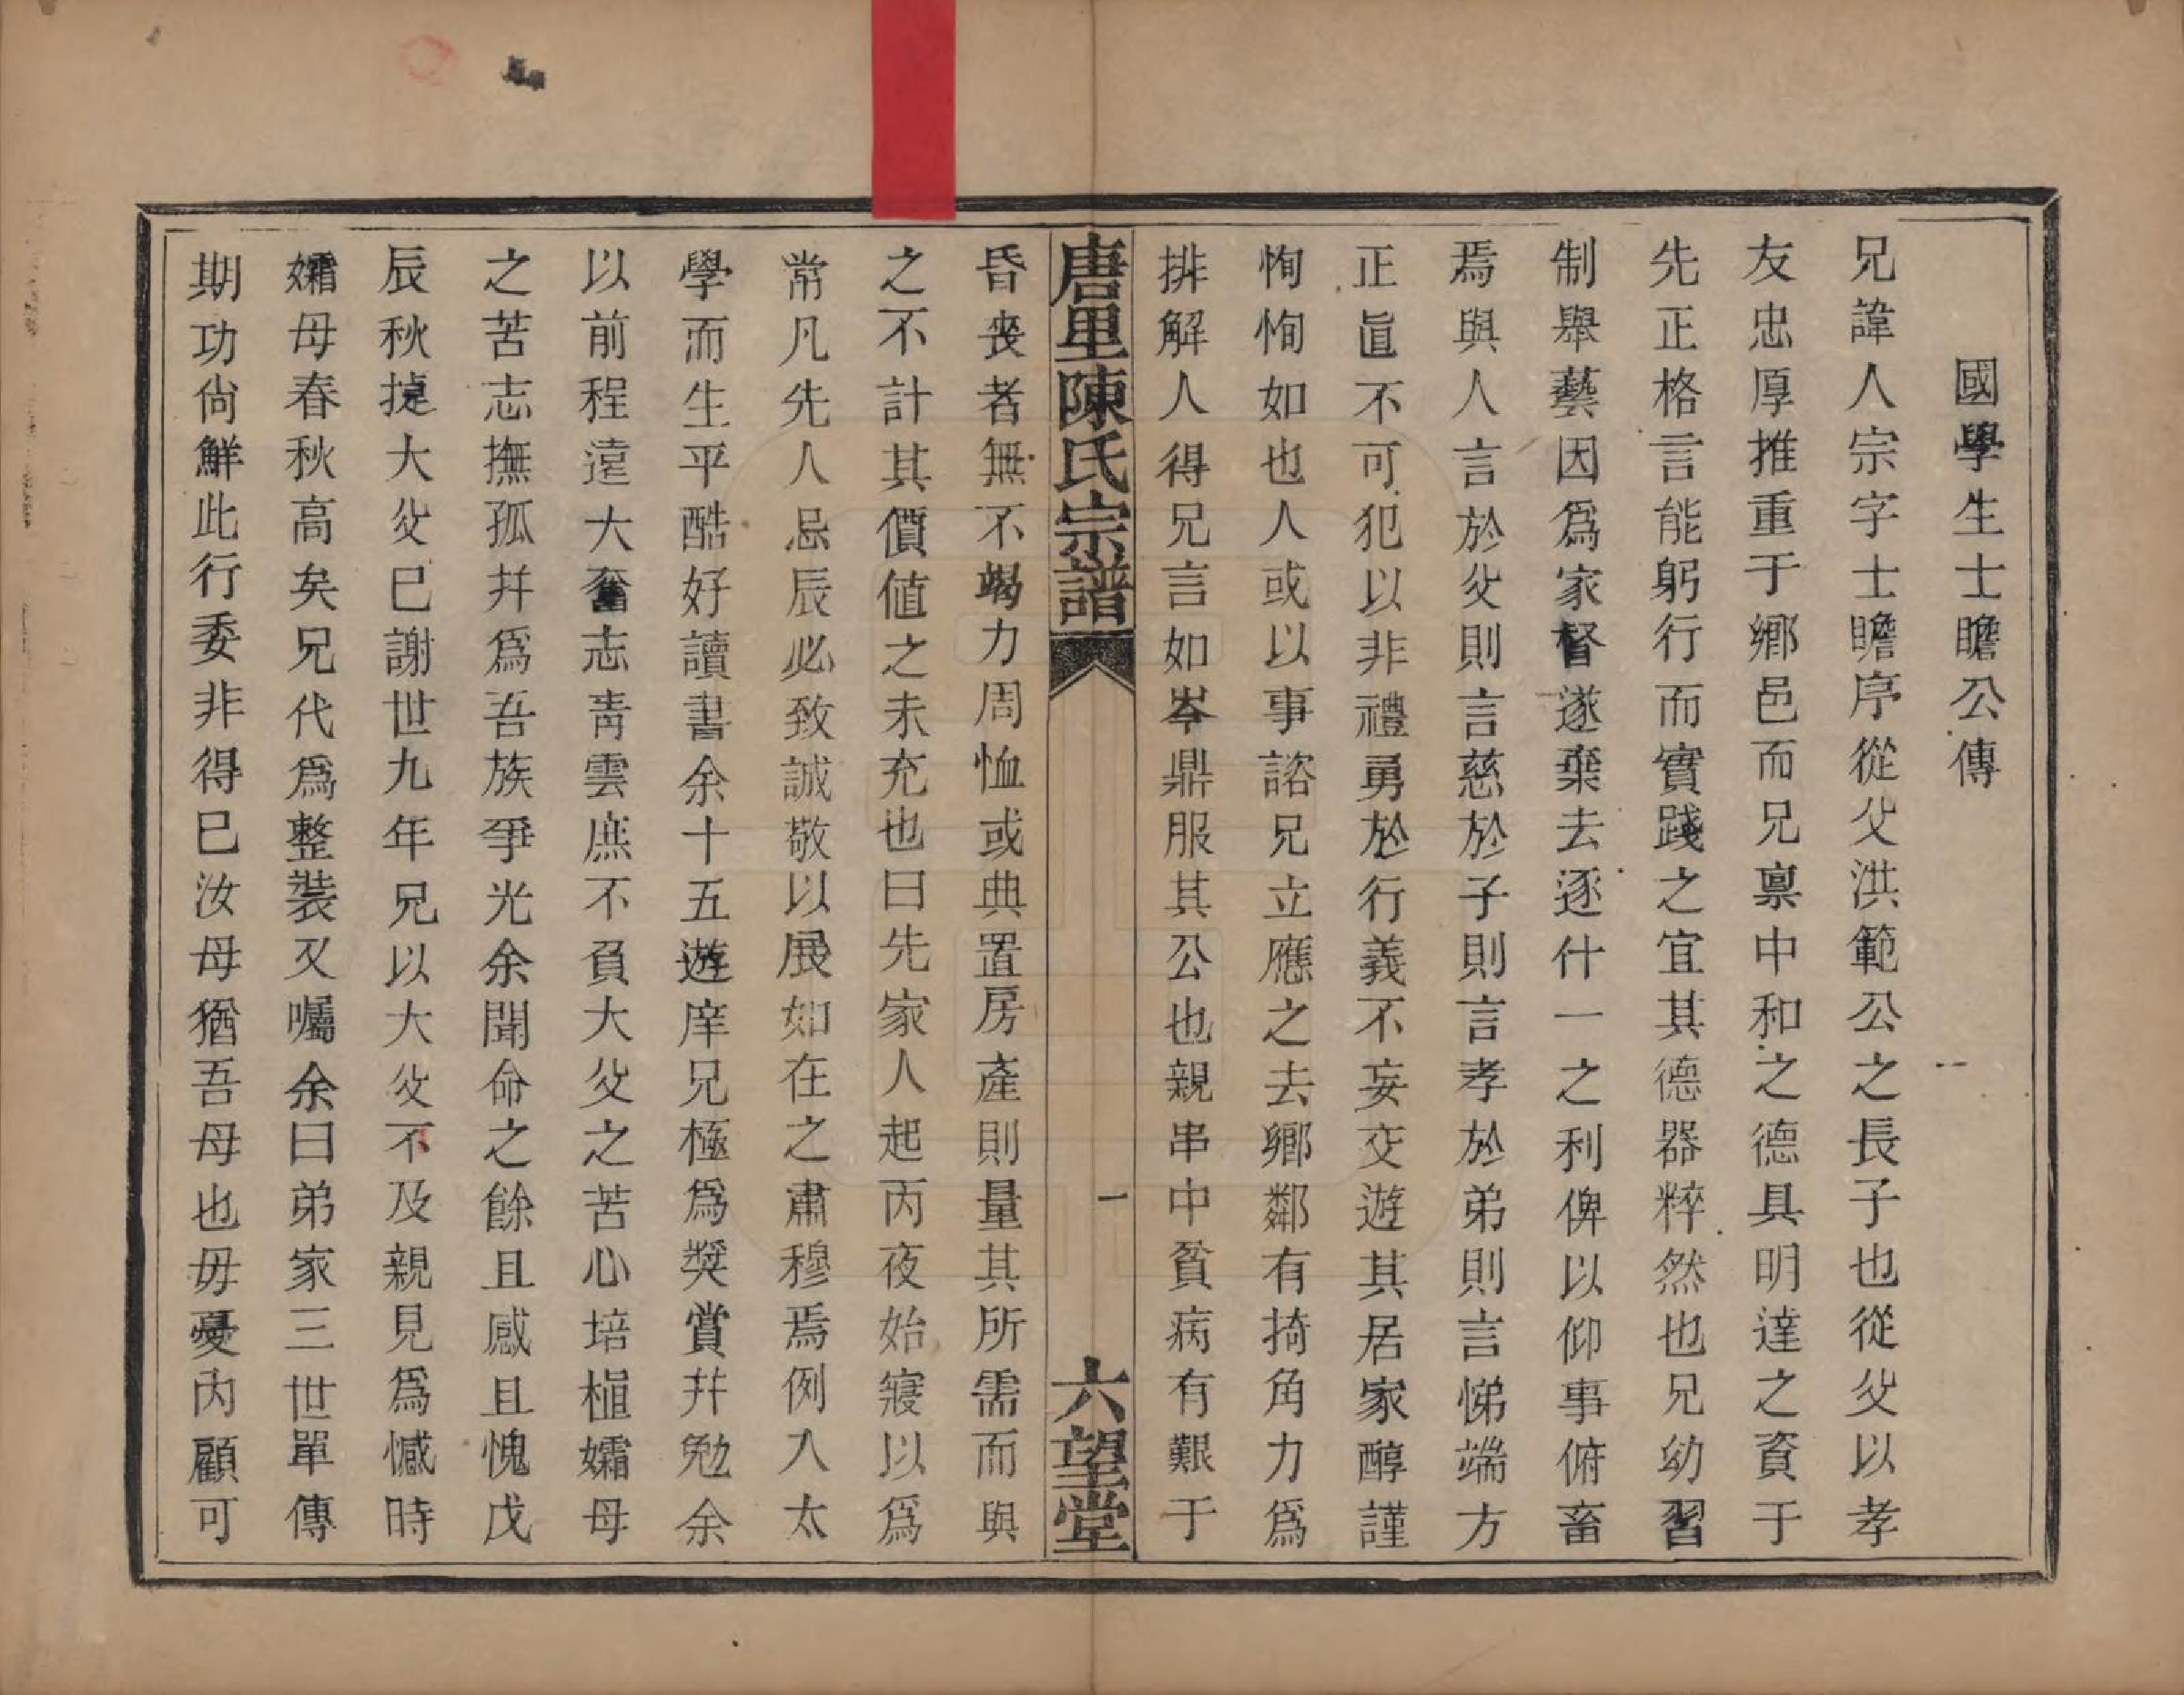 國學生士瞻公傳
兄諱人宗字士瞻序從父洪範公之長子也從父以孝
友忠厚推重于鄉邑而兄禀中和之德具明達之資于
先正格言能躬行而實踐之宜其德器粹然也兄幼習
制舉藝因爲家督遂棄去逐什一之利俾以仰事俯畜
焉與人言於父則言慈於子則言孝於弟則言悌端方
正直不可犯以非禮勇於行義不妄交遊其居家醇謹
恂恂如也人或以事諮兄立應之去鄉鄰有掎角力爲
排解人得兄言如岑鼎服其公也親串中貧病有艱于
唐里陳氏宗譜
一
六望堂
昏喪者無不竭力周恤或典置房產則量其所需而與
之不計其價値之未充也曰先家人起丙夜始寢以爲
常凡先人忌辰必致誠敬以展如在之肅穆焉例入太
學而生平酷好讀書余十五遊庠兄極爲獎賞幷勉余
以前程遠大奮志靑雲庶不負大父之苦心培植孀母
之苦志撫孤幷爲吾族爭光余聞命之餘且感且愧戊
辰秋㨗大父已謝世九年兄以大父不及親見爲憾時
孀母春秋高矣兄代爲整裝又囑余曰弟家三世單傳
期功尙鮮此行委非得已汝母猶吾母也毋憂內顧可